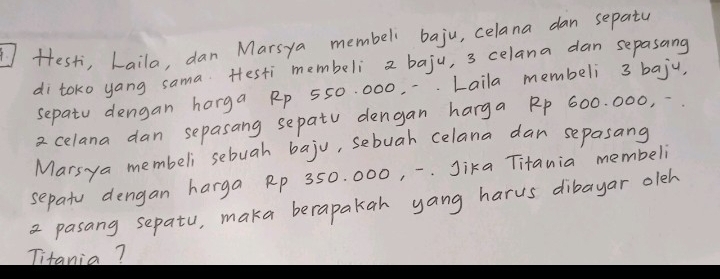 1. Hesti, Laila, dan Marsya membeli baju, celana dan sepatu
di toko yang sama. Hesti membeli 2 baju, 3 celana dan sepasang
sepatu dengan harga Rp 550.000,-. Laila membeli 3 baju,
2 celana dan sepasang sepatu dengan harga Rp 600.000,-.
Marsya membeli sebuah baju, sebuah celana dan sepasang
sepatu dengan harga Rp 350.000,-. Jika Titania membeli
2 pasang sepatu, maka berapakah yang harus dibayar oleh
Titania?